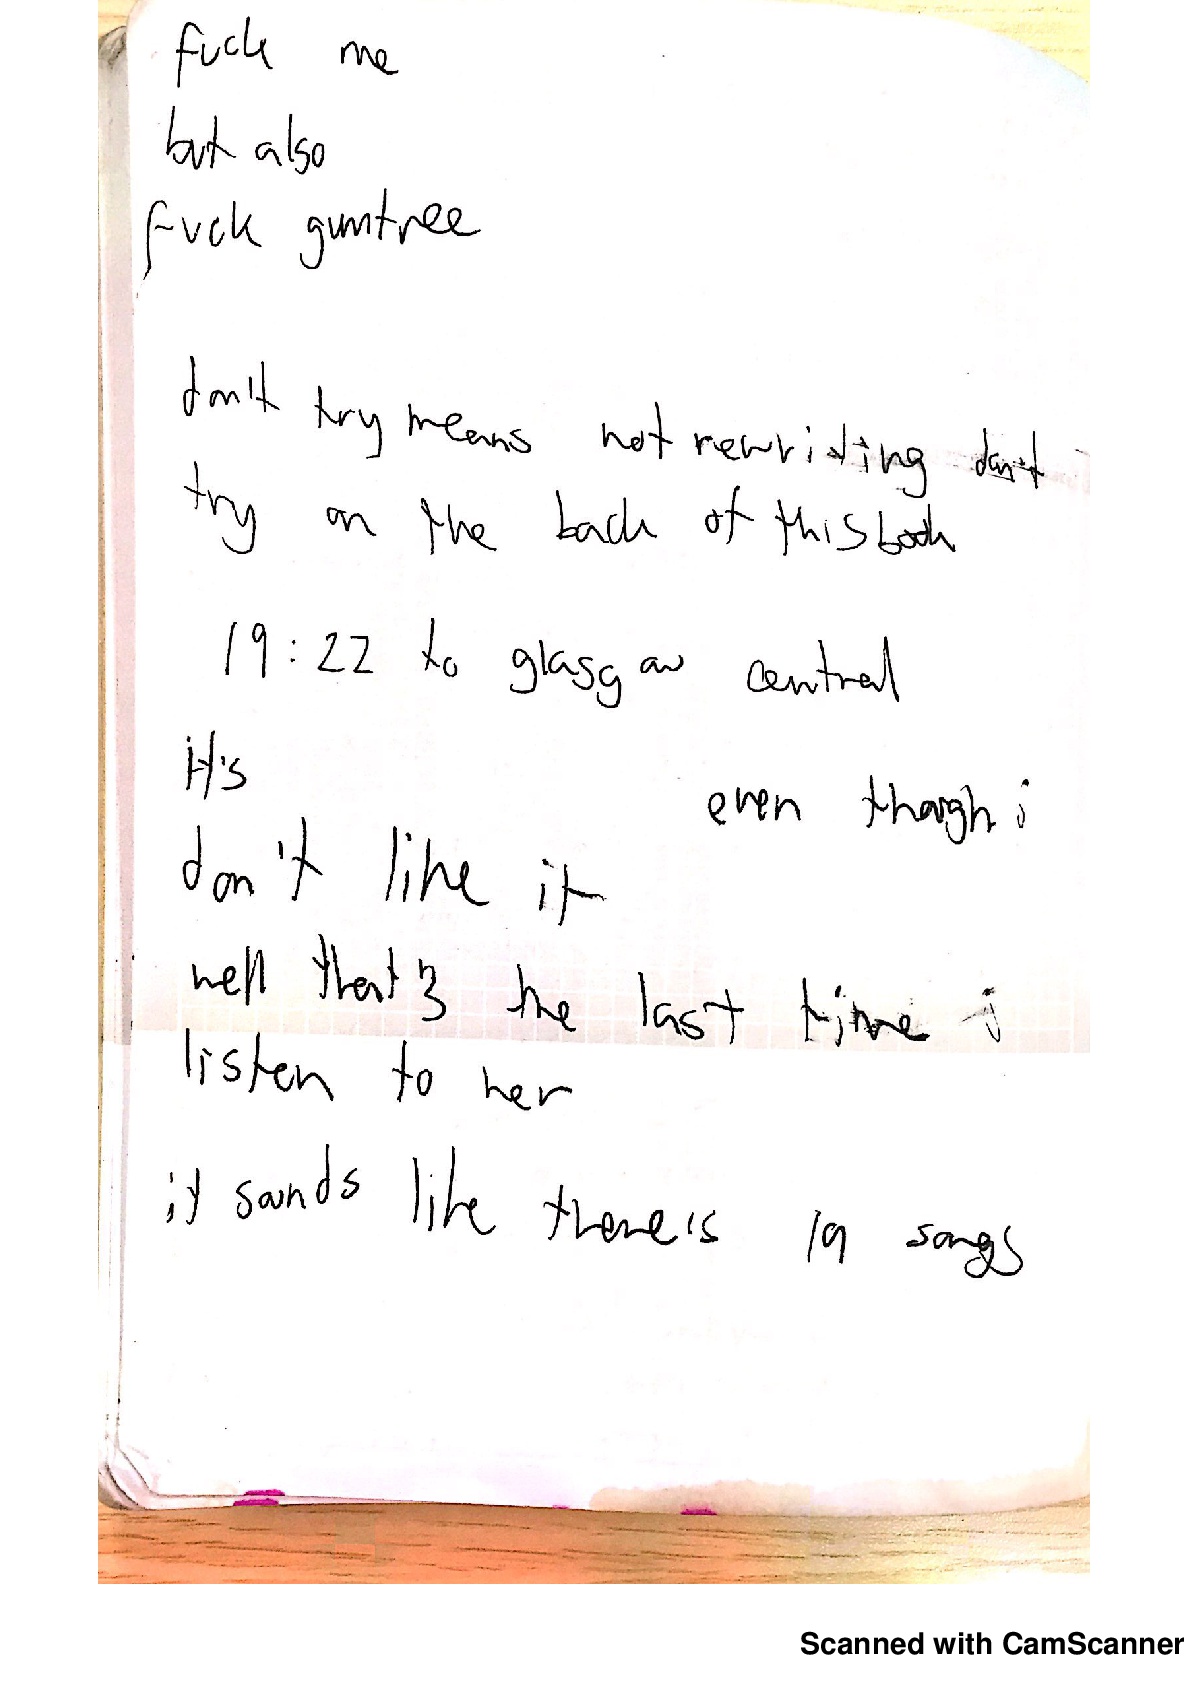 fuck me
but also
fuck gumtree
don't try means not rewriting don't
try on the back of this book
19:22 to glasgow central
it's even though i
don't like it
well that's the last time i
listen to her
it sounds like there's 19 songs
Scanned with CamScanner